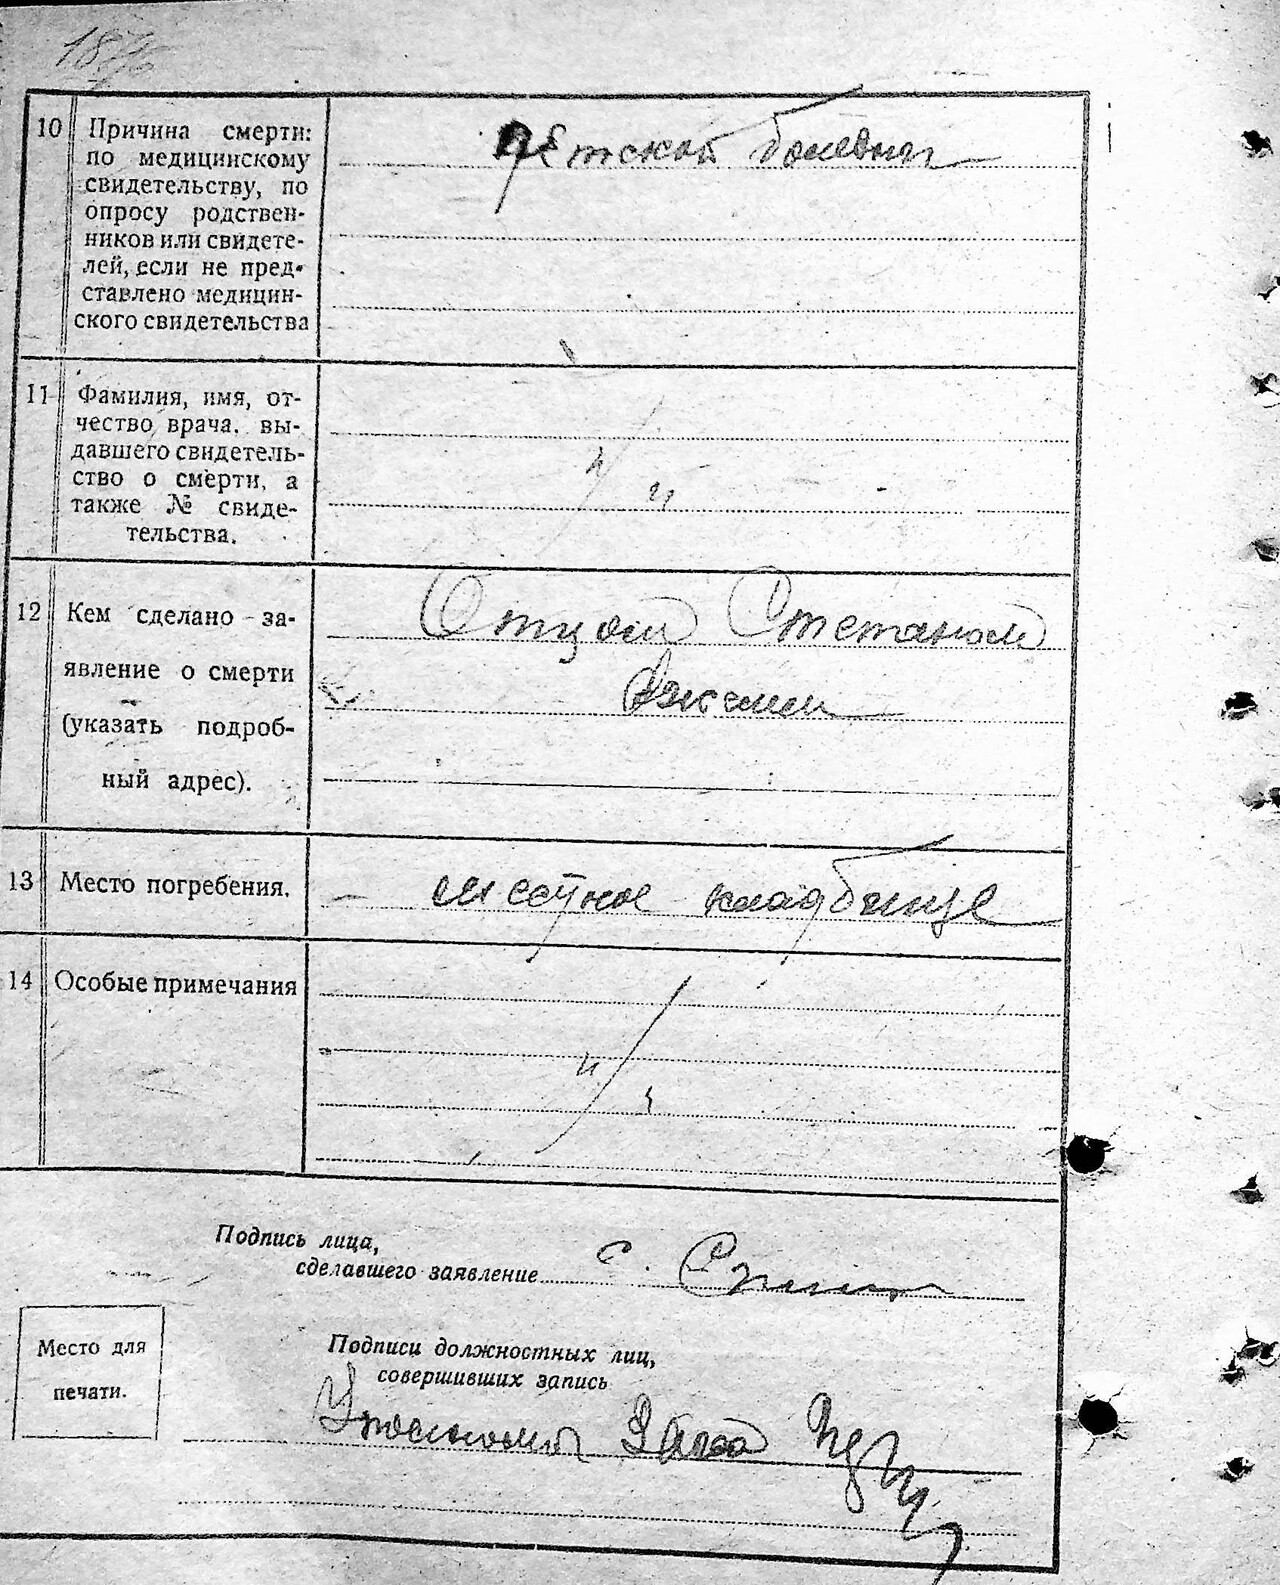 10 Причина смерти:
по медицинскому
свидетельству, по
опросу родствен-
ников или свидете-
лей, если не пред-
ставлено медицин-
ского свидетельства
детской болезни
11 Фамилия, имя, от-
чество врача, вы-
давшего свидетель-
ство о смерти, а
также № свиде-
тельства.
12 Кем сделано за-
явление о смерти
(указать подроб-
ный адрес).
Отцом Степаном
13 Место погребения.
местное кладбище
14 Особые примечания
Подпись лица,
сделавшего заявление
с.
Место для
печати.
Подписи должностных лиц,
совершивших запись